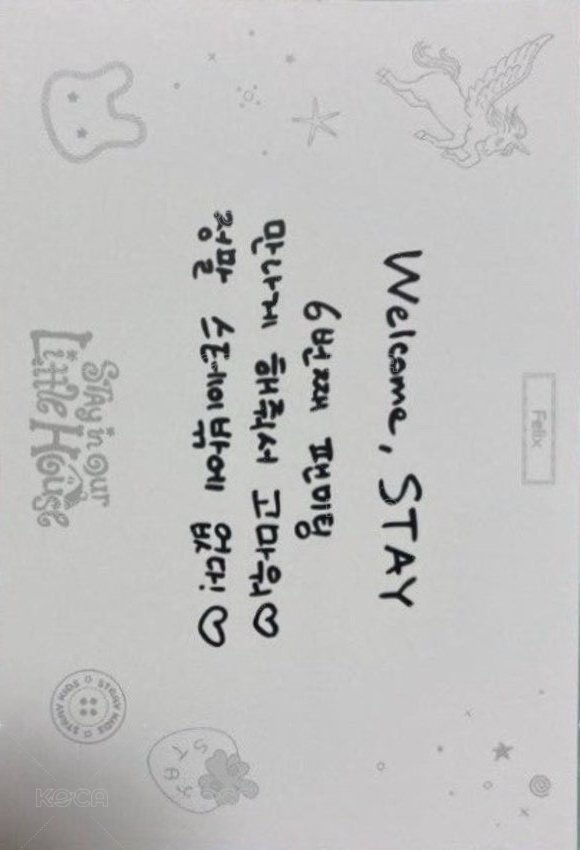 Felix
Welcome, STAY
6번째 팬미팅
만나게 해줘서 고마워♡
정말 스테이밖에 없다! ♡
Stay in our
Little House
STRAY KIDS
STRAY KIDS
STAY
KOCA